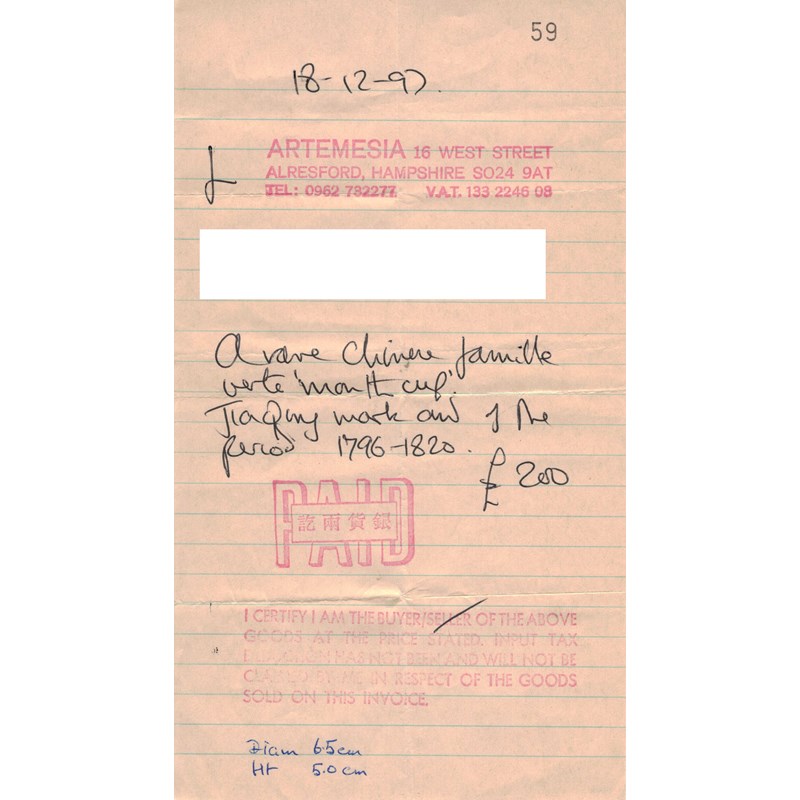 59
18-12-97.
ARTEMESIA 16 WEST STREET
ALRESFORD, HAMPSHIRE SO24 9AT
TEL: 0962 732277 V.A.T. 133 2246 08
A rare Chinese famille
verte 'month cup'.
JiaQing mark and of the
period 1796-1820.
£200
PAID
訖兩貨銀
I CERTIFY I AM THE BUYER/SELLER OF THE ABOVE
GOODS AT THE PRICE STATED. INPUT TAX
DEDUCTION HAS NOT BEEN AND WILL NOT BE
CLAIMED BY ME IN RESPECT OF THE GOODS
SOLD ON THIS INVOICE.
Diam 6.5cm
Ht 5.0cm